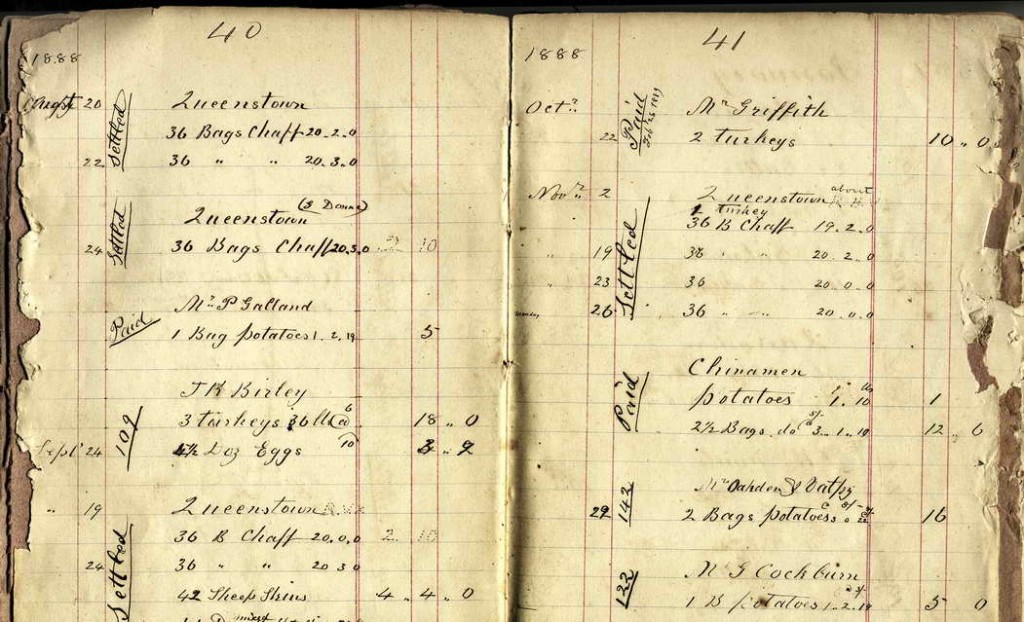 40
1888
Augst 20
Settled
Queenstown
36 Bags Chaff 20.2.0
22
36 " " 20.3.0
Queenstown
24
Settled
36 Bags Chaff 20.3.0 10
Mr P Galland
Paid
1 Bag potatoes 1.2.19 5
J K Birley
109
3 turkeys 36 lbs 6 18 " 0
Sept 24
4½ Doz Eggs 10 " 9
" 19
Queenstown
Settled
36 B Chaff 20.0.0 2 10
24
36 " " 20 3 0
42 Sheep Skins 4 " 4 " 0
mixed
41
1888
Octr
Paid
Mr Griffith
22
2 turkeys 10 " 0
Novr 2
Queenstown about
1 turkey
Settled
36 B Chaff 19.2.0
" 19
36 " " 20.2.0
" 23
36 20.0.0
26
36 " " 20.0.0
Chinamen
Paid
potatoes 1.10 1
2½ Bags do 3.1.19 12 " 6
Mr Oahden &
29
142
2 Bags potatoes 16
Mr G Cockburn
122
1 B potatoes 1.2.19 5 0